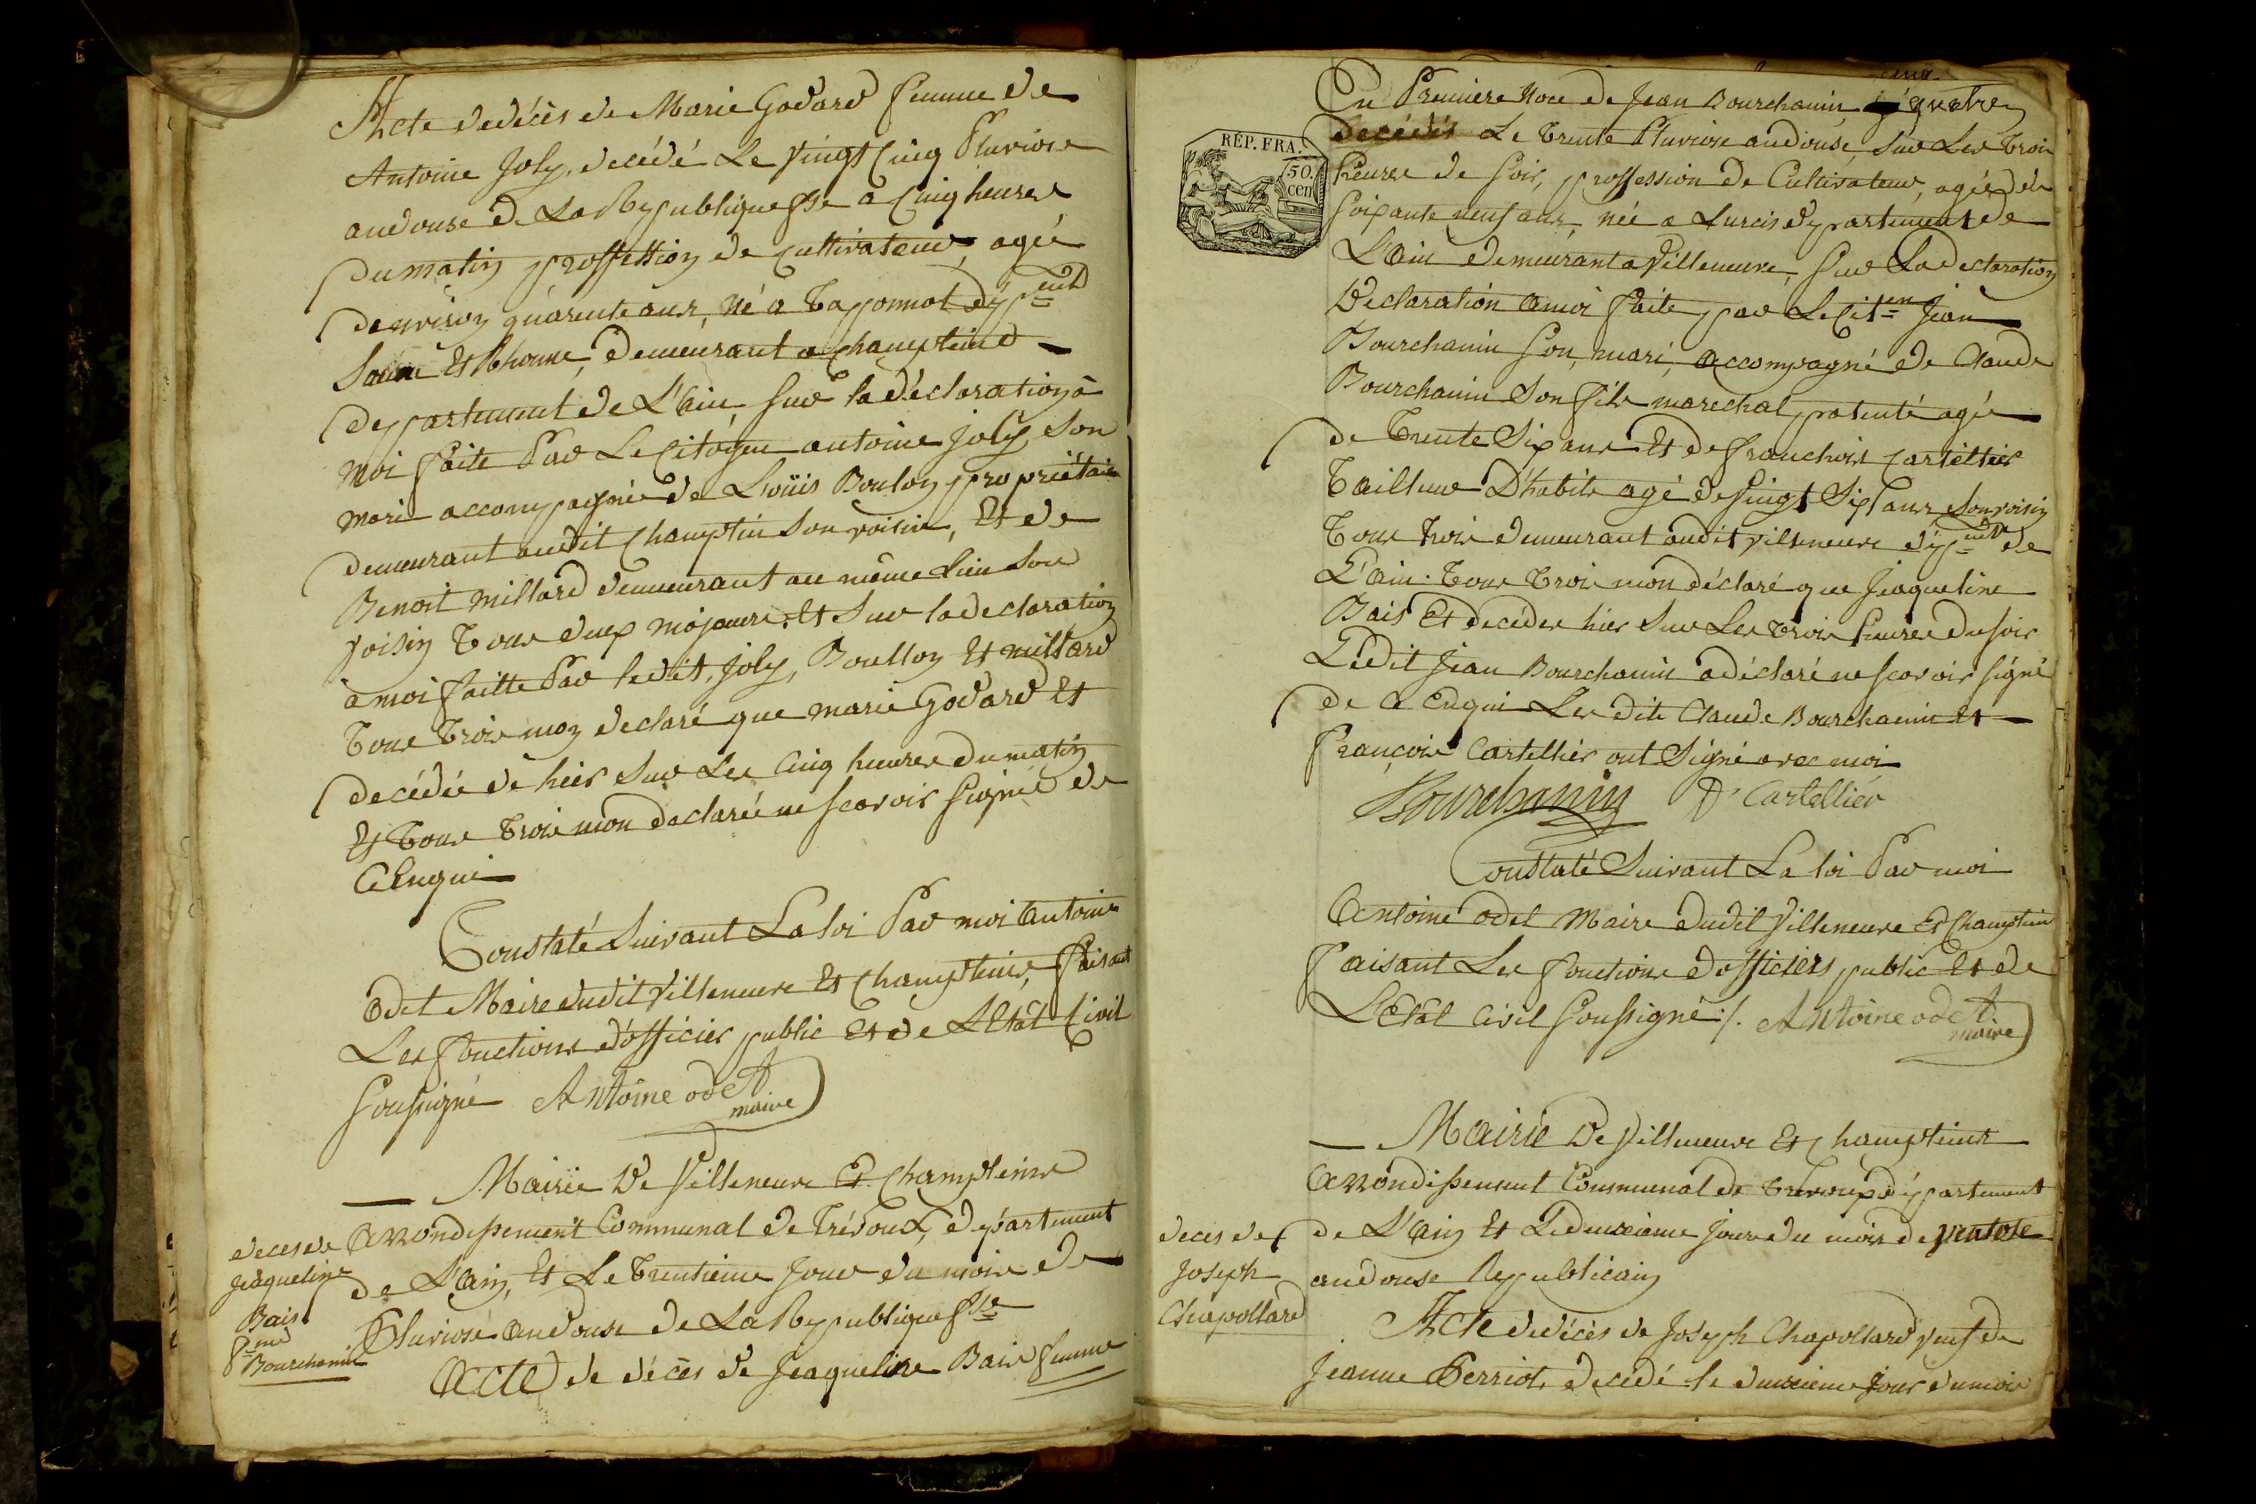 Acte de décès de Marie Godard femme de
Antoine Joly, decédé Le Vingt Cinq Pluviose
an douse de La Republique fse a Cinq heures
du matin proffession de Cultivateur, agée
de quarente ans, né a Taponnat dépent
Saone Et Rhonne, demeurant a Champtein
departement de L'ain, sur la déclaration à
moi faite Par Le Citoyen antoine Joly, Son
mari accompagnée de Loüis Boulon propriétaire
demeurant audit Champtin son voisin, Et de
Benoit millard demeurant au même Lieu Son
voisin Tous deux majeurs. Et Sur la declaration
à moi faitte Par ledit, Joly, Boullon Et millard
Tous Trois mon declaré que marie Godard Et
decédée de hier Sur Les Cinq heures du matin
Et Tous Trois mon declarée ne scavoir signée de
Ce Enquis
Constaté Suivant La loi Par moi antoine
odet Maire dudit Villeneuve Et Champteins, faisant
Les fonctions d'officier public Et de L'Etat Civil
soussigné Antoine odet
maire
Mairie De Villeneuve Et Champteins
Arrondissement Communal de Trévoux, département
de L'ain, Et Le Trentieme Jour du mois de
Pluviose an douse de La Republique fse
Acte de décès de Jeaqueline Bais femme
deces de
Jeaqueline
Bais
fme
Bourchanin
En Premiere Noce de Jean Bourchanin
decédés Le Trente Pluviose an douse, sur Les Trois
heures de soir, proffession de Cultivateur, agée de
soixante neuf ans, née a Lurcis département de
L'ain demeurant a Villeneuve, sur La declaration
Declaration a moi faite par Le Citen Jean
Bourchanin son mari, accompagné de Claude
Bourchanin Son fils marechal patenté agé
de Trente Six ans Et de franchois Cartellier
Tailleur D'habits agé de vingt Sept ans son voisin
Tous trois demeurant audit villeneuve dépent de
L'ain. Tous Trois mon déclaré que Jeaqueline
Bais Et decédée hier Sur Les trois heures du soir
Ledit Jean Bourchanin a déclaré ne scavoir signé
de Ce Enquis Les dits Claude Bourchanin Et
françois Cartellier ont Signé avec moi
Bourchanin f Cartellier
Constaté Suivant La loi Par moi
Antoine odet Maire dudit Villeneuve Et Champtein
faisant Les fonctions d'officiers public Et de
L'Etat Civil soussigné ./. Antoine odet
maire
RÉP. FRA.
50.
cen
Mairie De Villeneuve Et Champteins
Arrondissement Communal de Trevoux département
de L'ain Et Le deuxieme jour du mois de ventose
an douse Republicain
Acte de décès de Joseph Chapollard veuf de
Jeanne Perriot, decédé le deuxieme jour du mois
deces de
Joseph
Chapollard